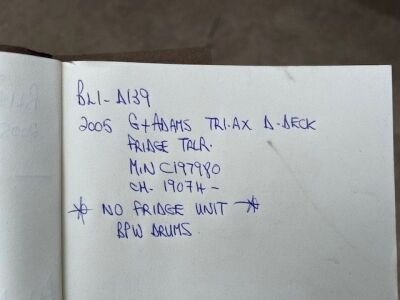 BL1-D139
2005 G+ADAMS TRI.AX D-DECK
FRIDGE TRLR.
MIN C197980
CH- 19074-
* NO FRIDGE UNIT *
BPW DRUMS.